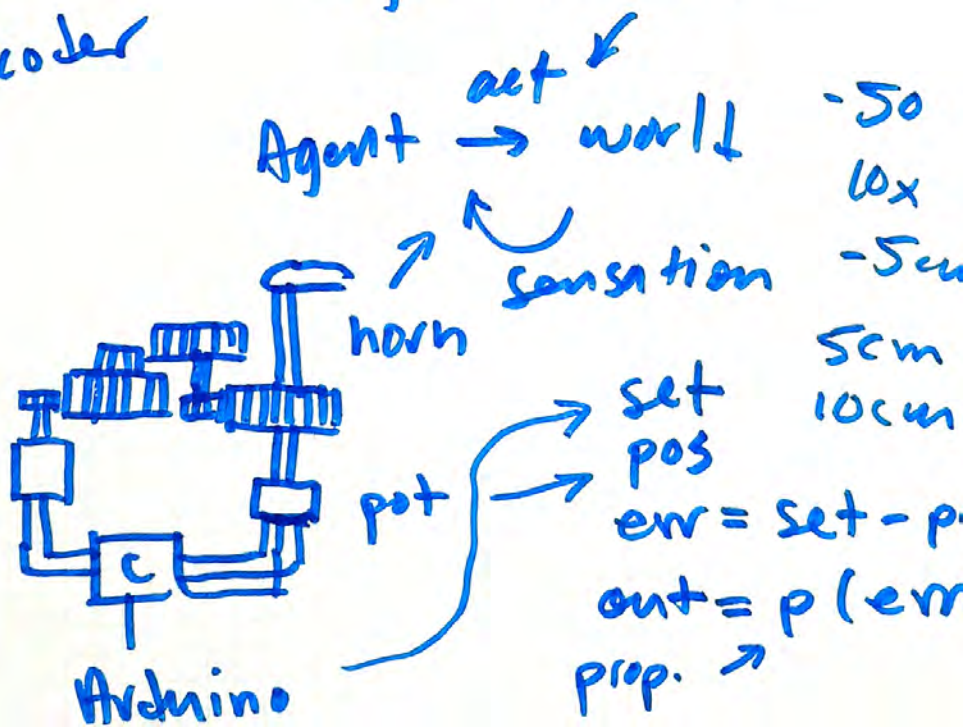 coder
act
Agent → world
sensation
-50
10x
-5cm
5cm
10cm
horn
pot
set
pos
err = set - p
out = p (err
prop.
C
Arduino